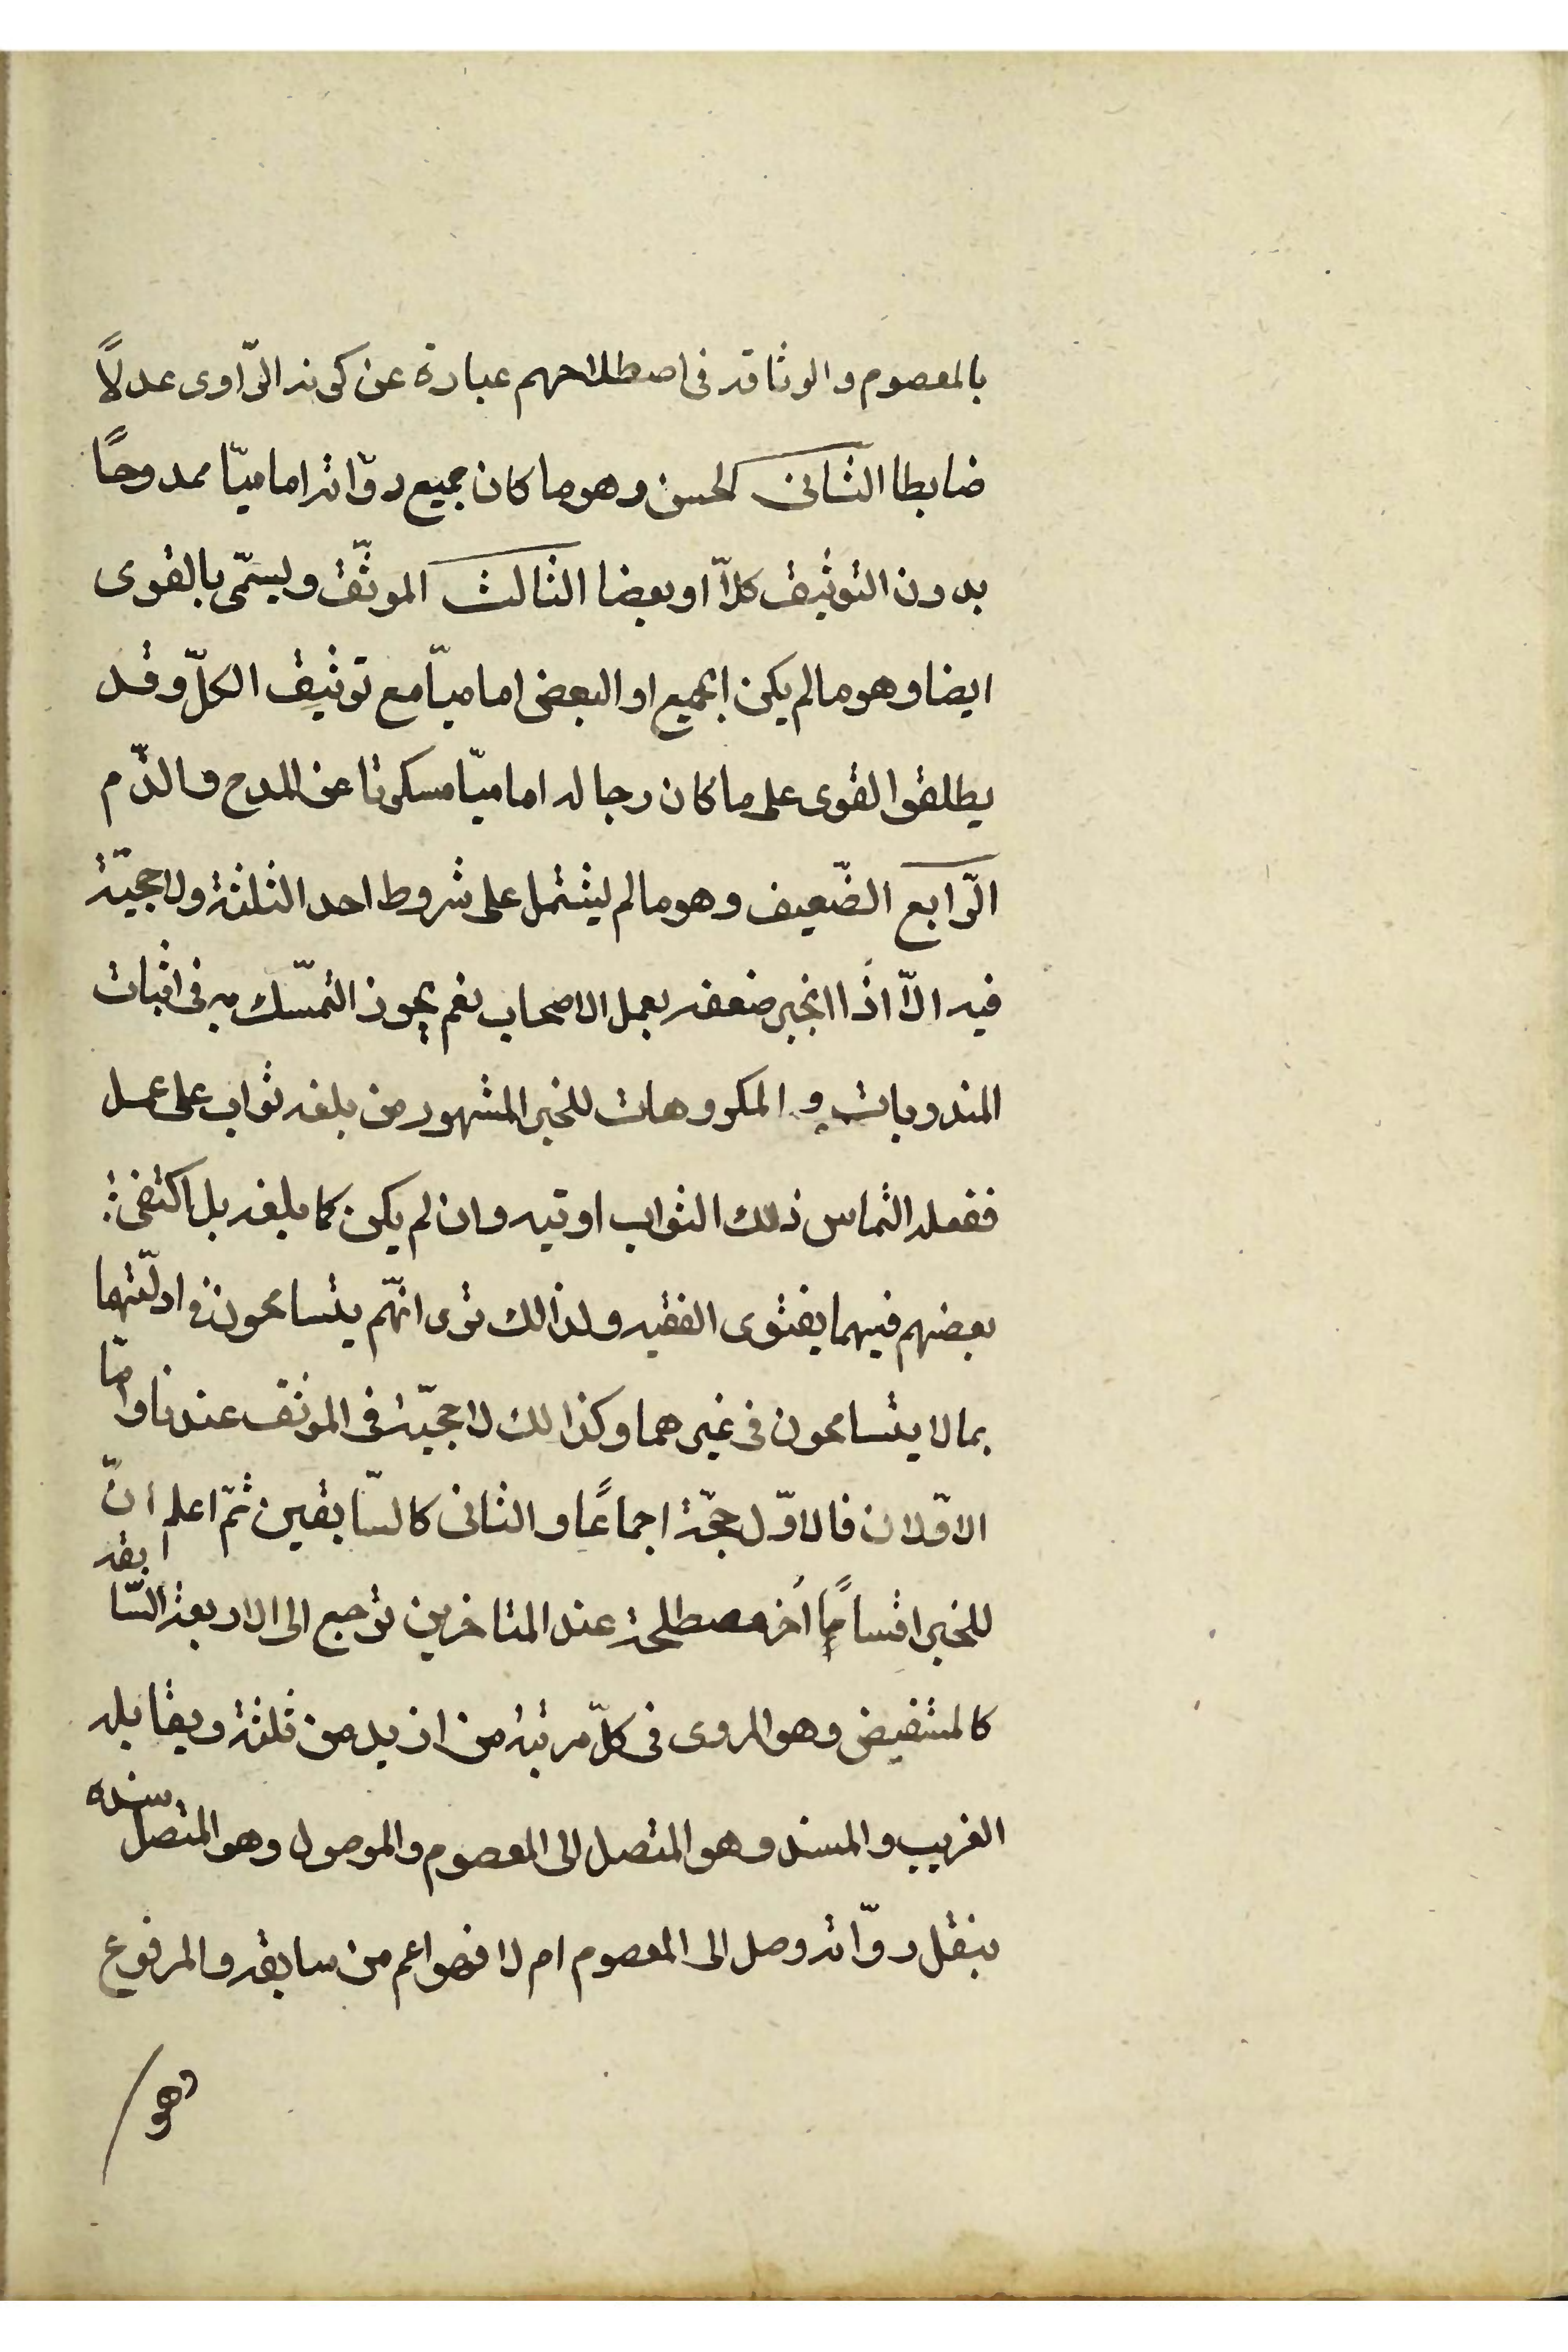 بالمعصوم والوثاقه فى اصطلاحهم عبارة عن كونه الرّاوى عدلاً
ضابطا الثانى الحسن وهو ما كان جميع روّاته اماميّا ممدوحًا
بدون التوثيق كلاّ او بعضا الثالث الموثّق ويسمّى بالقوى
ايضا وهو ما لم يكن الجميع او البعض اماميّا مع توثيق الكلّ وقد
يطلقوا لقوى على ما كان رجاله اماميّا مسكوتا عن المدح والذّم
الرّابع الضّعيف وهو ما لم يشتمل على شروط احد الثلثة ولا حجيّة
فيه الاّ اذا انجبر ضعفه بعمل الاصحاب نعم يجوز التمسّك به فى اثبات
المندوبات و المكروهات للخبر المشهور من بلغه ثواب على عمل
ففعله التماس ذلك الثواب اوتيه وان لم يكن كما بلغه بل اكتفى
بعضهم فيهما بفتوى الفقيه ولذالك ترى انّهم يتسامحون فى ادلّتهما
بما لا يتسامحون فى غيرهما وكذالك لا حجيّة فى الموثق عندنا وامّا
الاوّلان فالاوّل حجّة اجماعًا والثانى كالسّابقين ثمّ اعلم انّ
للخبر اقسامًا اُخر مصطلحة عند المتاخرين ترجع الى الاربعة السّابقه
كالمستفيض وهو المروى فى كلّ مرتبة من ازيد من ثلثة ويقابله
الغريب والمسند وهو المتصل الى المعصوم والموصول وهو المتصل سنده
بنقل روّاته وصل الى المعصوم ام لا فهو اعم من سابقه والمرفوع
وهو